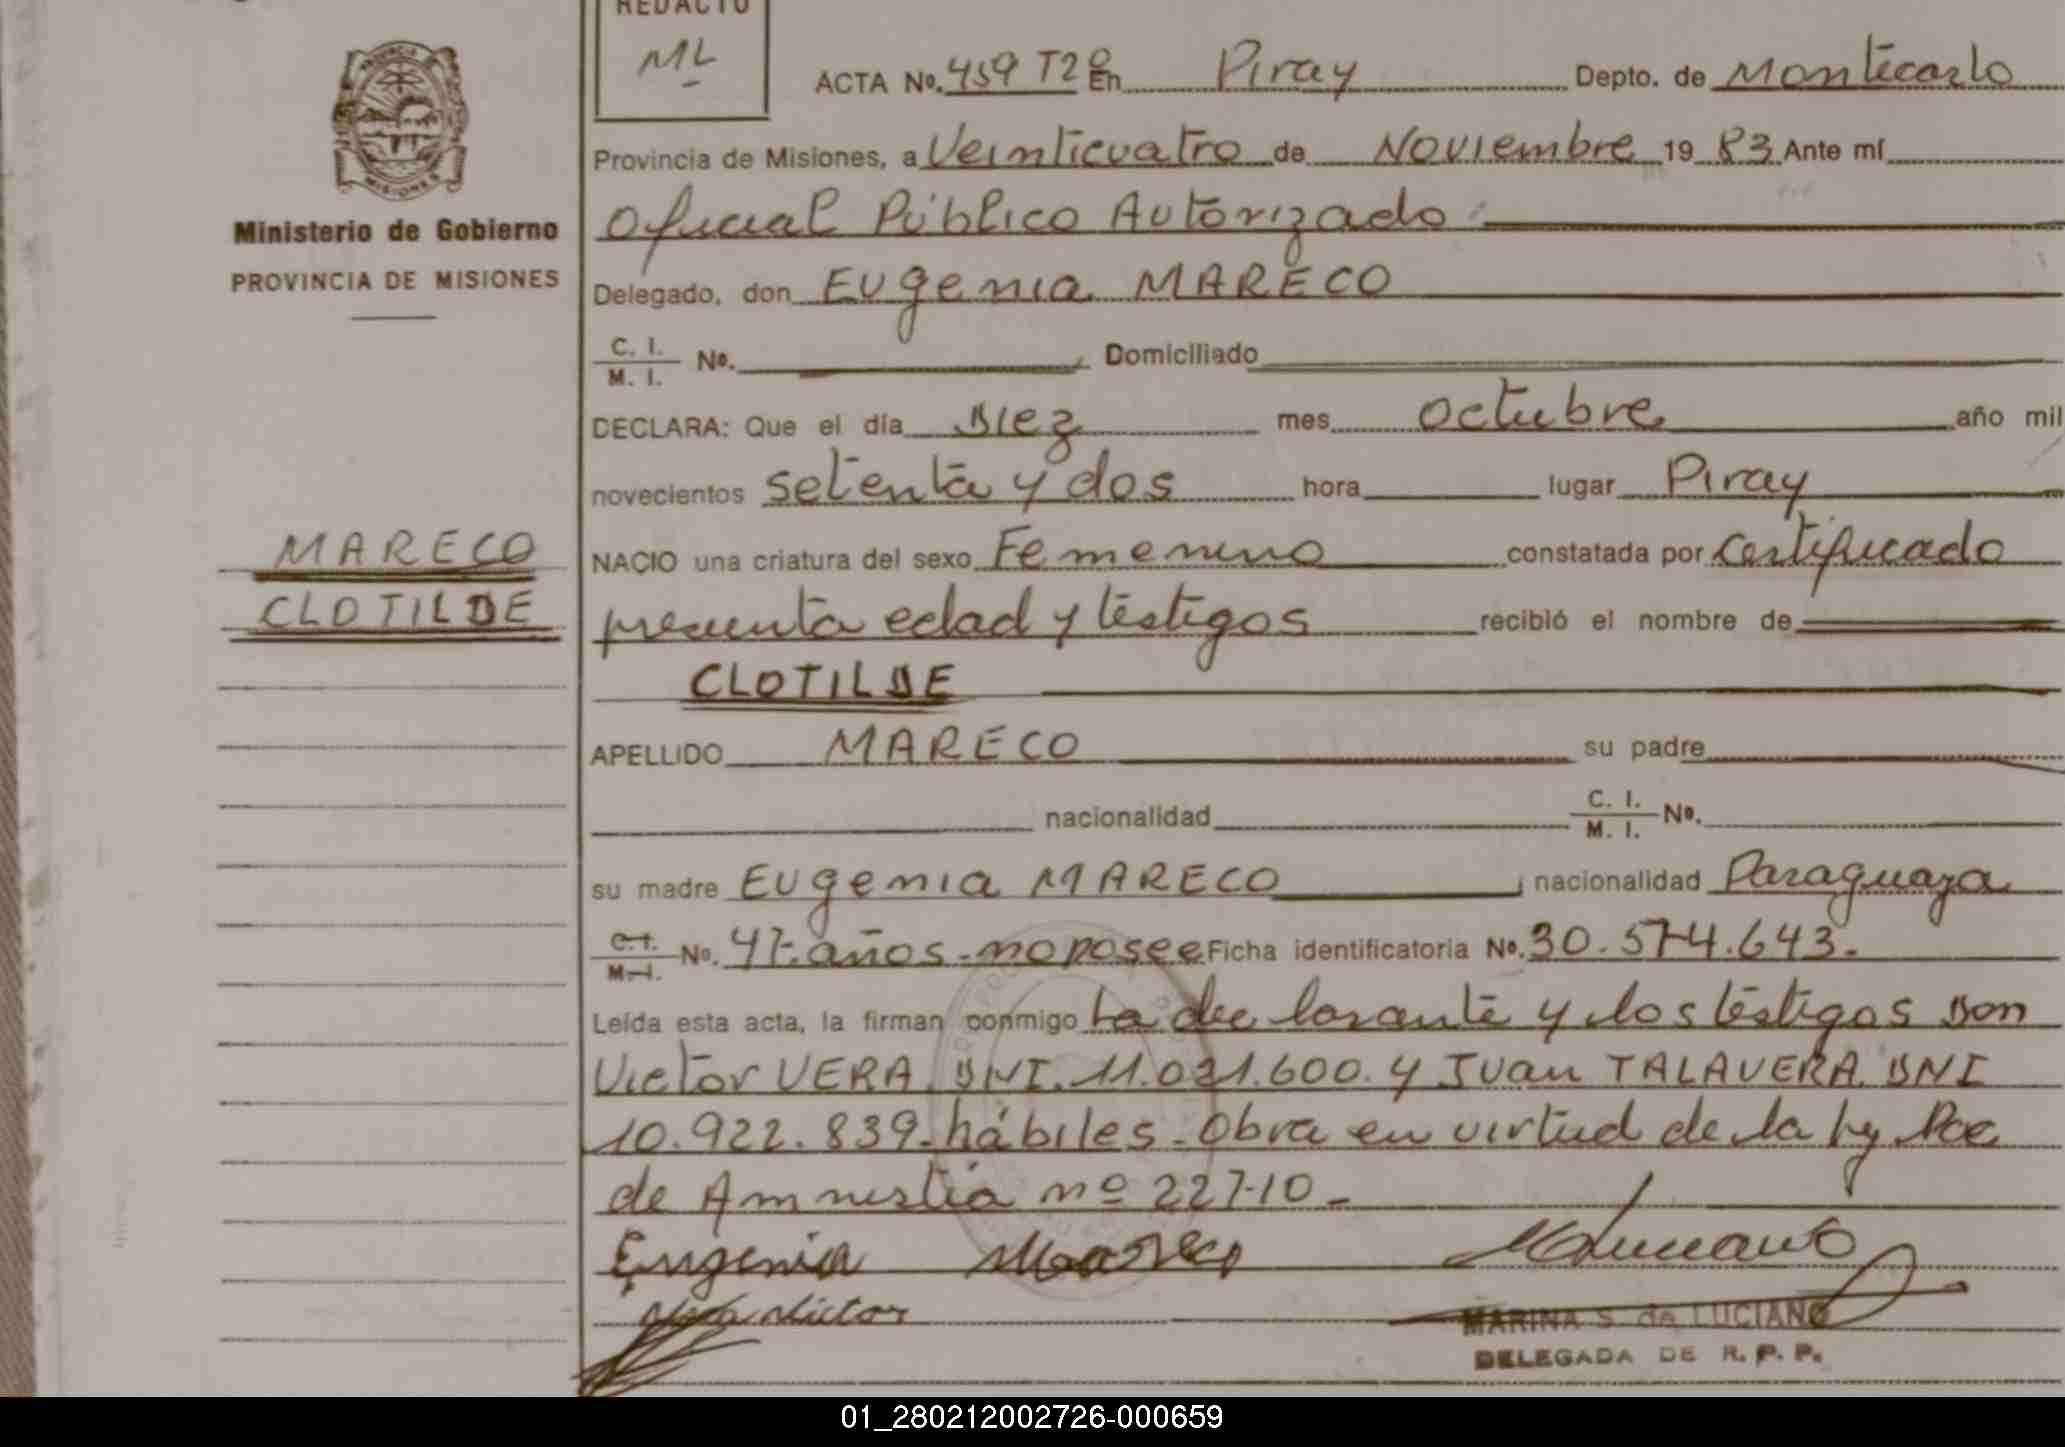 REDACTO
ML
ACTA No. 459 T2º En Piray Depto. de Montecarlo
Provincia de Misiones, a Veinticuatro de Noviembre 19 83 Ante mí
Oficial Público Autorizado
Ministerio de Gobierno
PROVINCIA DE MISIONES
Delegado, don Eugenia MARECO
C. I.
M. I. No. Domiciliado
DECLARA: Que el día Diez mes octubre año mil
novecientos setenta y dos hora lugar Piray
MARECO
CLOTILDE
NACIO una criatura del sexo Femenino constatada por Certificado
presunta edad y testigos recibió el nombre de
CLOTILDE
APELLIDO MARECO su padre
nacionalidad C. I.
M. I. No.
su madre Eugenia MARECO nacionalidad Paraguaya
C. I.
M. I. No. 47 años - no posee Ficha identificatoria No. 30.574.643.-
Leída esta acta, la firman conmigo La declarante y los testigos Don
Victor VERA DNI. 11.021.600. y Juan TALAVERA. DNI
10.922.839 hábiles - Obra en virtud de la ley
de Amnistia nº 22710 -
Eugenia Mareco
Vera Victor
MARINA S. de LUCIANO
DELEGADA DE R. P. P.
PROVINCIA
MISIONES
01_280212002726-000659